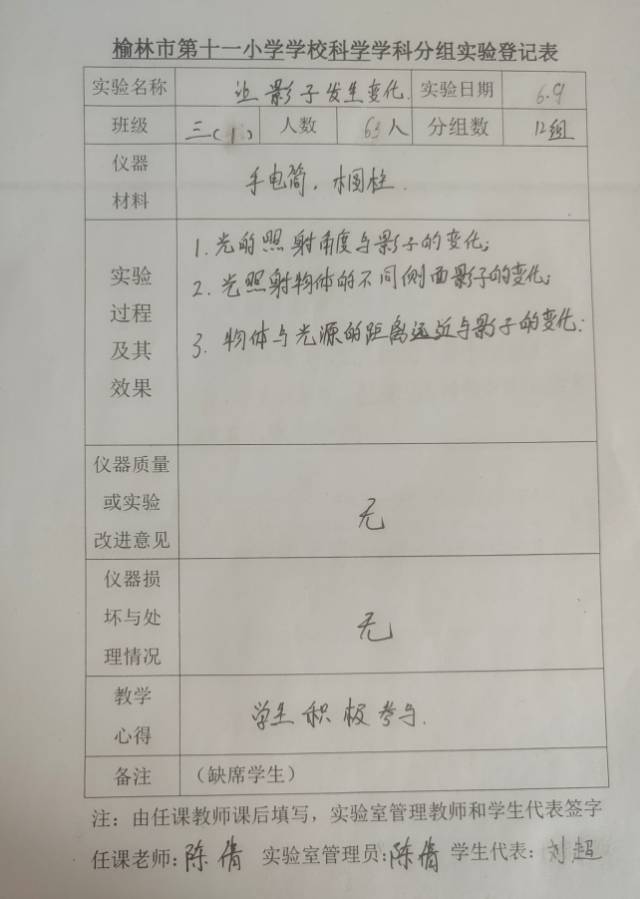 榆林市第十一小学学校科学学科分组实验登记表
实验名称 让影子发生变化. 实验日期 6.9
班级 三(1) 人数 63人 分组数 12组
仪器
材料
手电筒. 木圆柱.
实验
过程
及其
效果
1. 光的照射角度与影子的变化;
2. 光照射物体的不同侧面影子的变化;
3. 物体与光源的距离远近与影子的变化:
仪器质量
或实验
改进意见
无
仪器损
坏与处
理情况
无
教学
心得
学生积极参与.
备注 (缺席学生)
注: 由任课教师课后填写, 实验室管理教师和学生代表签字
任课老师: 陈倩 实验室管理员: 陈倩 学生代表: 刘超